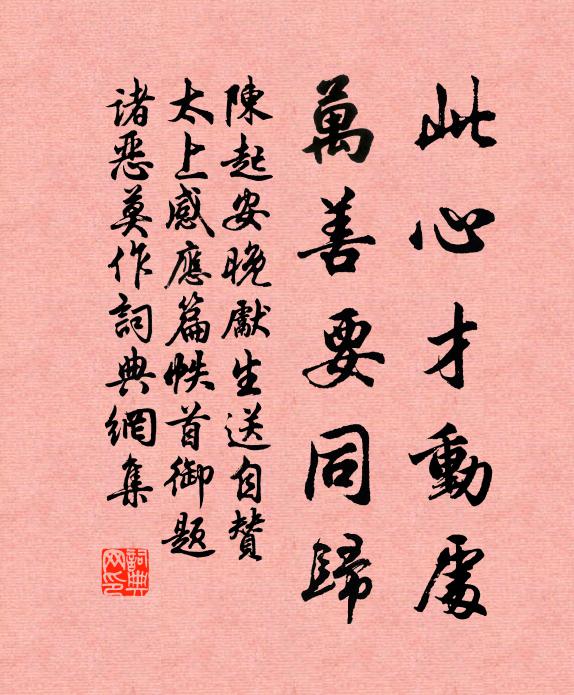 此心才動處
萬善要同歸
陳起安晚獻生送自贊
太上感應篇帙首御題
諸惡莫作詞典網集
詞典
网印